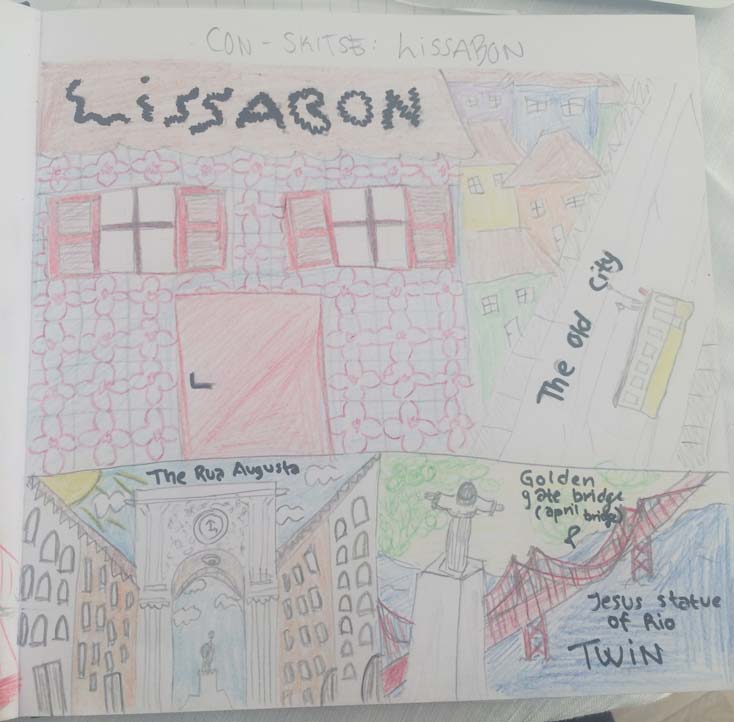 CON-SKITSE: LISSABON
LISSABON
The Old City
The Rua Augusta
Golden
gate bridge
(april bridge)
Jesus statue
of Rio
TWIN